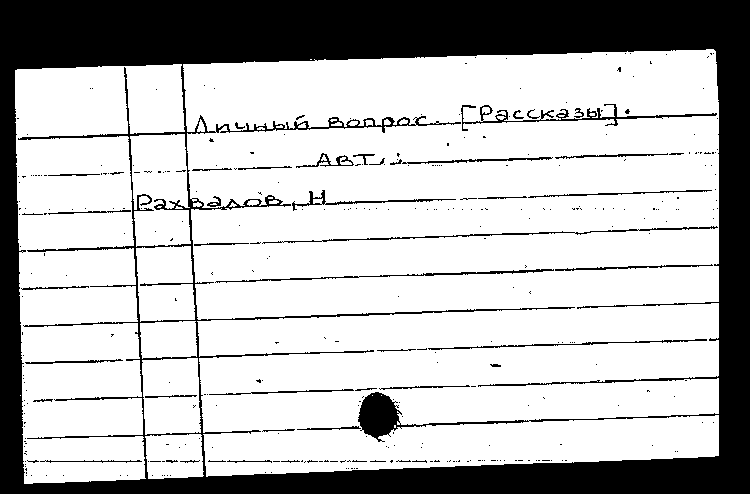 Личный вопрос. [Рассказы].
Авт.:
Рахвалов, Н